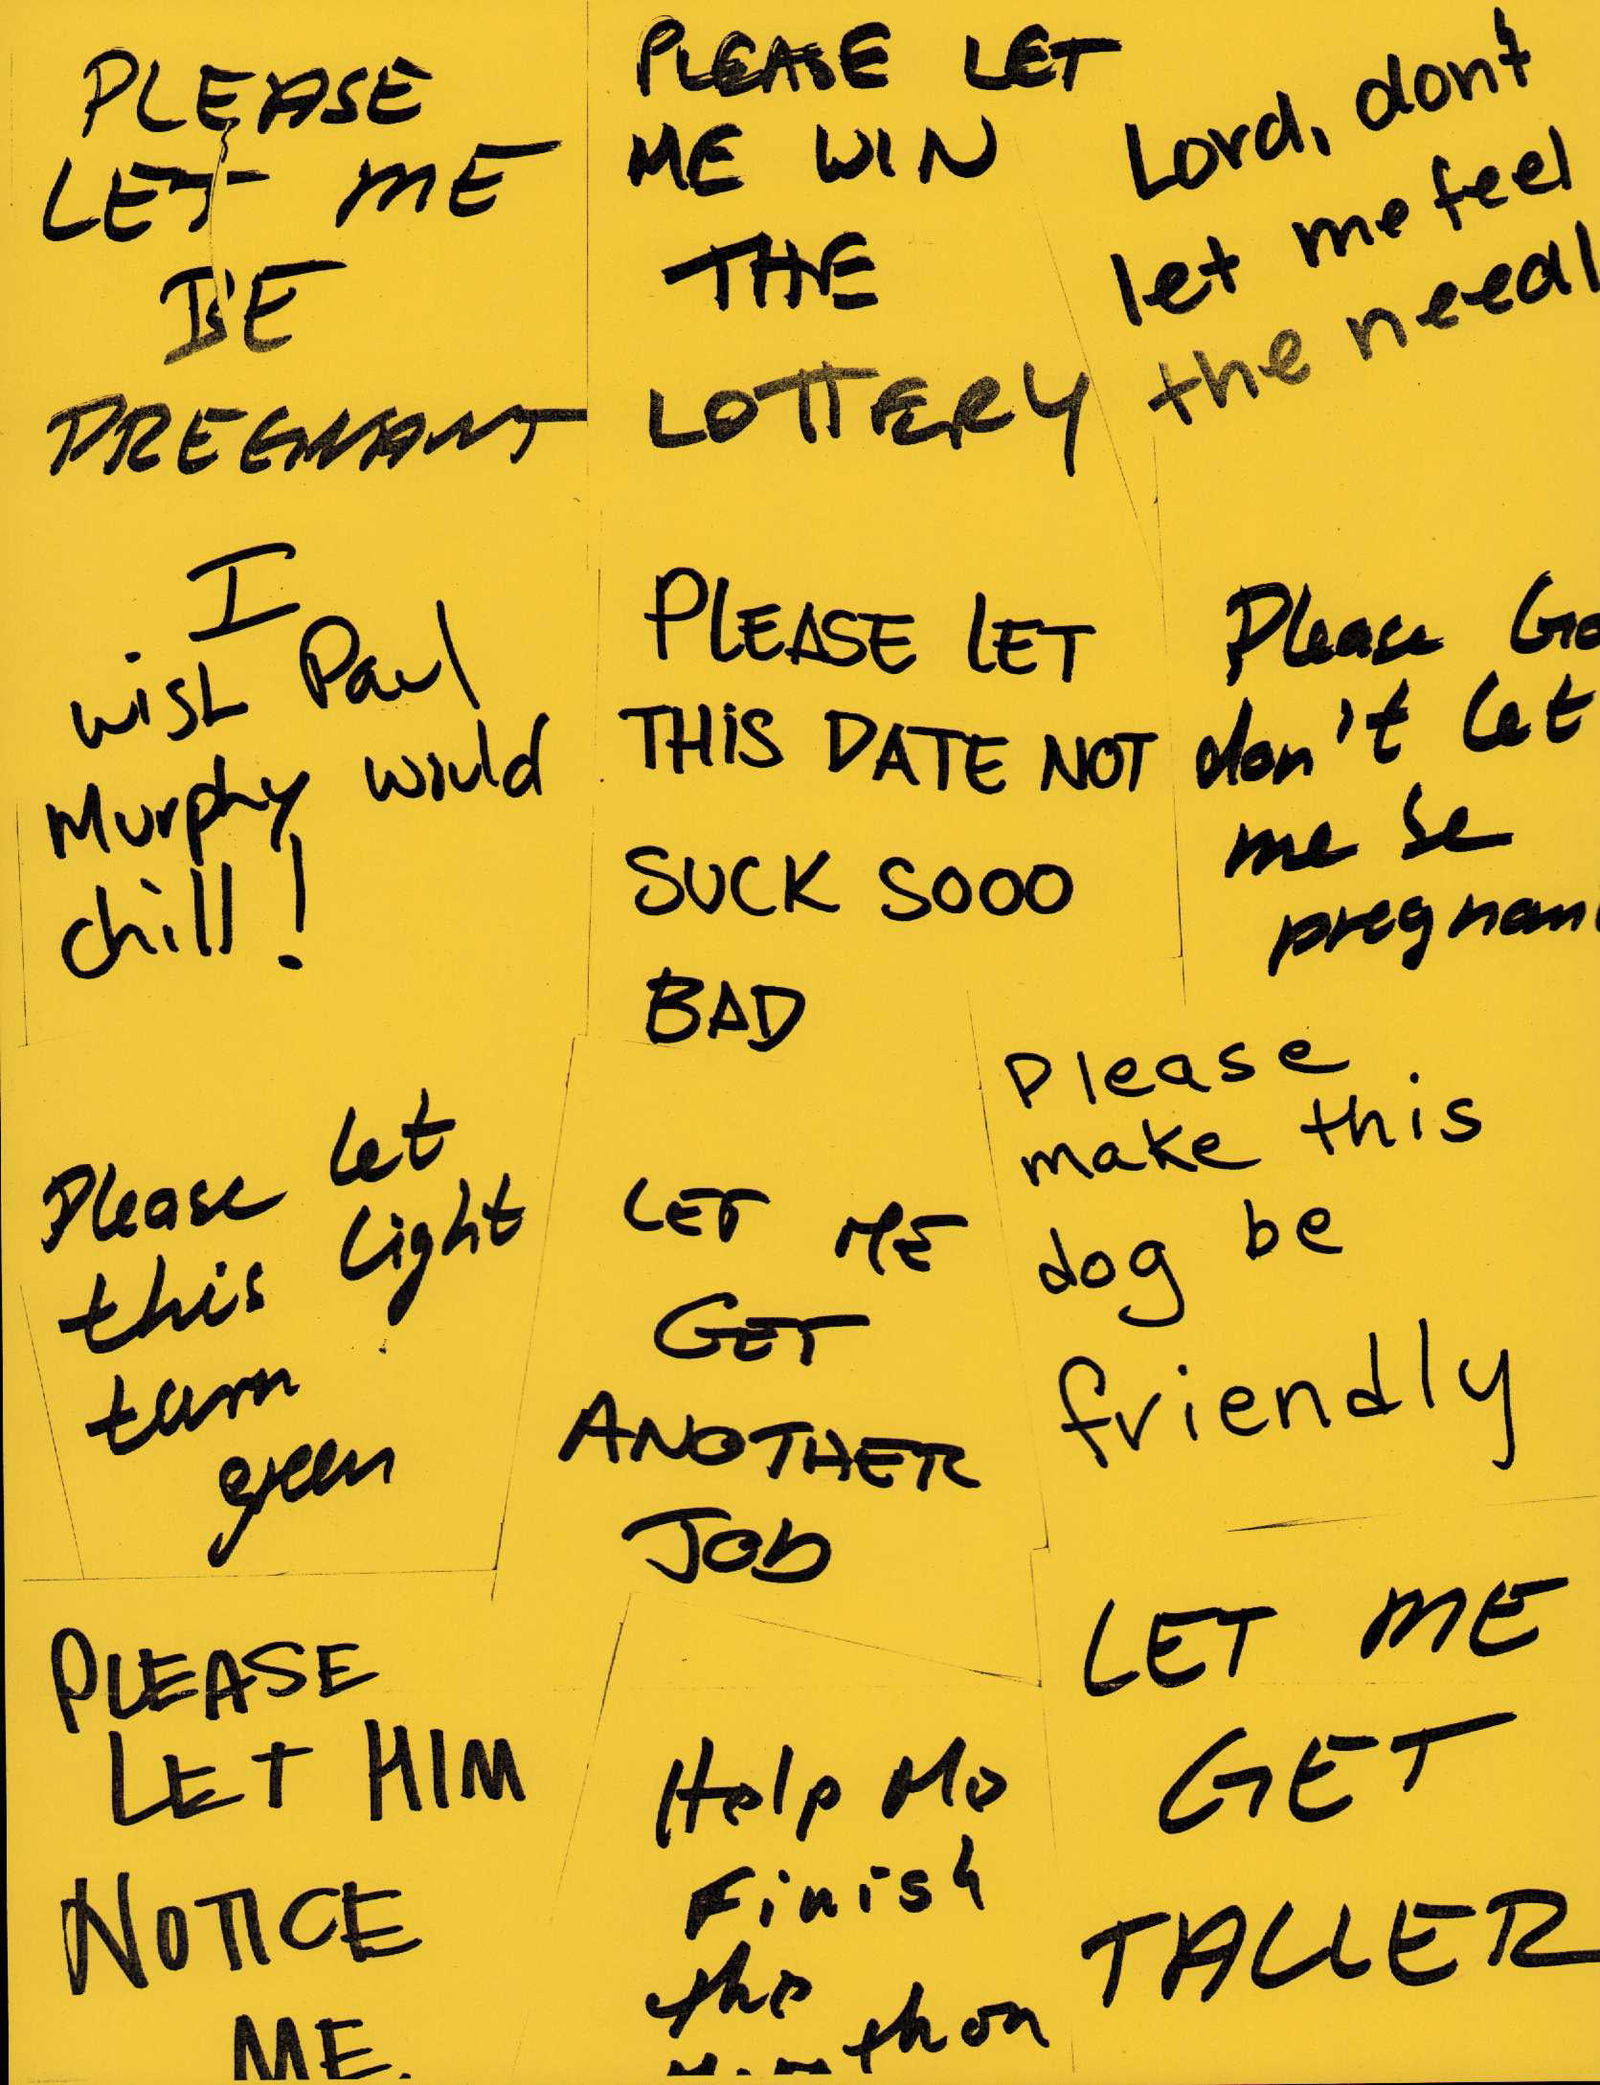 PLEASE
LET ME
BE
PREGNANT
PLEASE LET
ME WIN
THE
LOTTERY
Lord, don't
let me feel
the needl
I
wish Paul
Murphy would
chill!
PLEASE LET
THIS DATE NOT
SUCK SOOO
BAD
Please Go
don't let
me be
pregnan
Please let
this light
turn
green
LET ME
GET
ANOTHER
JOB
Please
make this
dog be
friendly
PLEASE
LET HIM
NOTICE
ME.
Help Me
Finish
the
LET ME
GET
TALLER